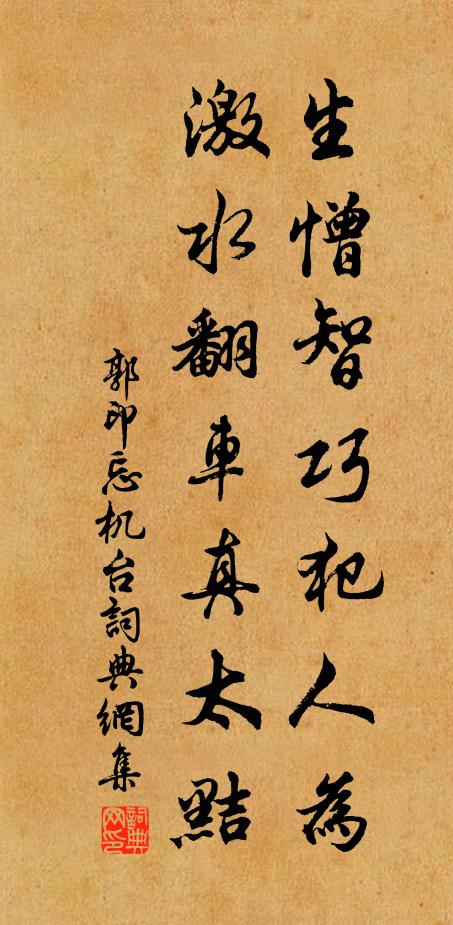 生憎智巧犯人為
激水翻車真太黠
郭印忘机台詞典網集
詞典网印